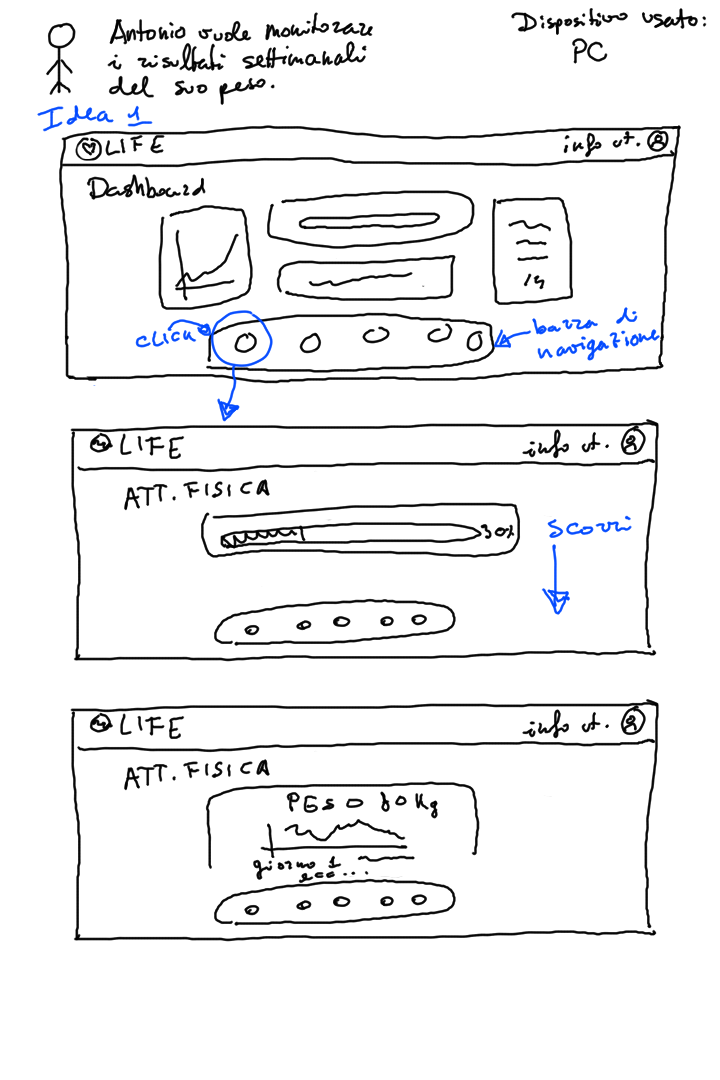 Antonio vuole monitorare
i risultati settimanali
del suo peso.
Dispositivo usato:
PC
Idea 1
LIFE
info ut.
Dashboard
CLICK
barra di
navigazione
LIFE
info ut.
ATT. FISICA
30%
SCORRI
LIFE
info ut.
ATT. FISICA
PESO 80 Kg
giorno 1
ecc...